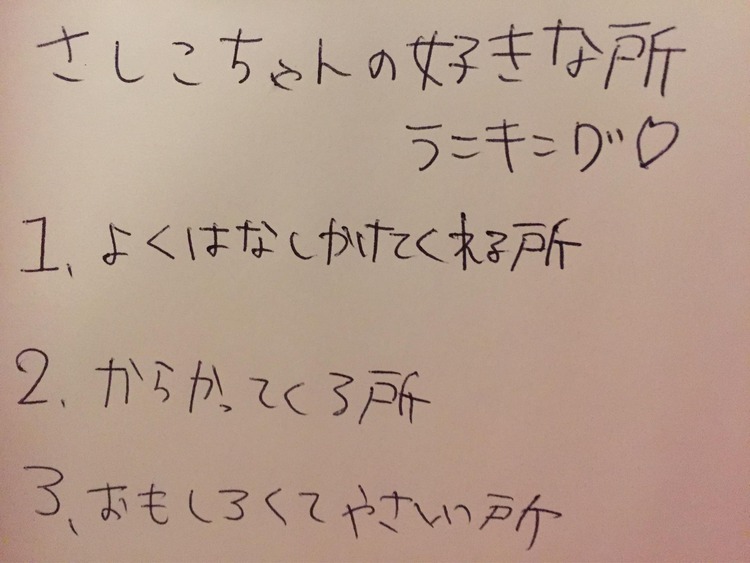 さしこちゃんの好きな所
ランキング♡
1、よくはなしかけてくれる所
2、からかってくる所
3、おもしろくてやさしい所